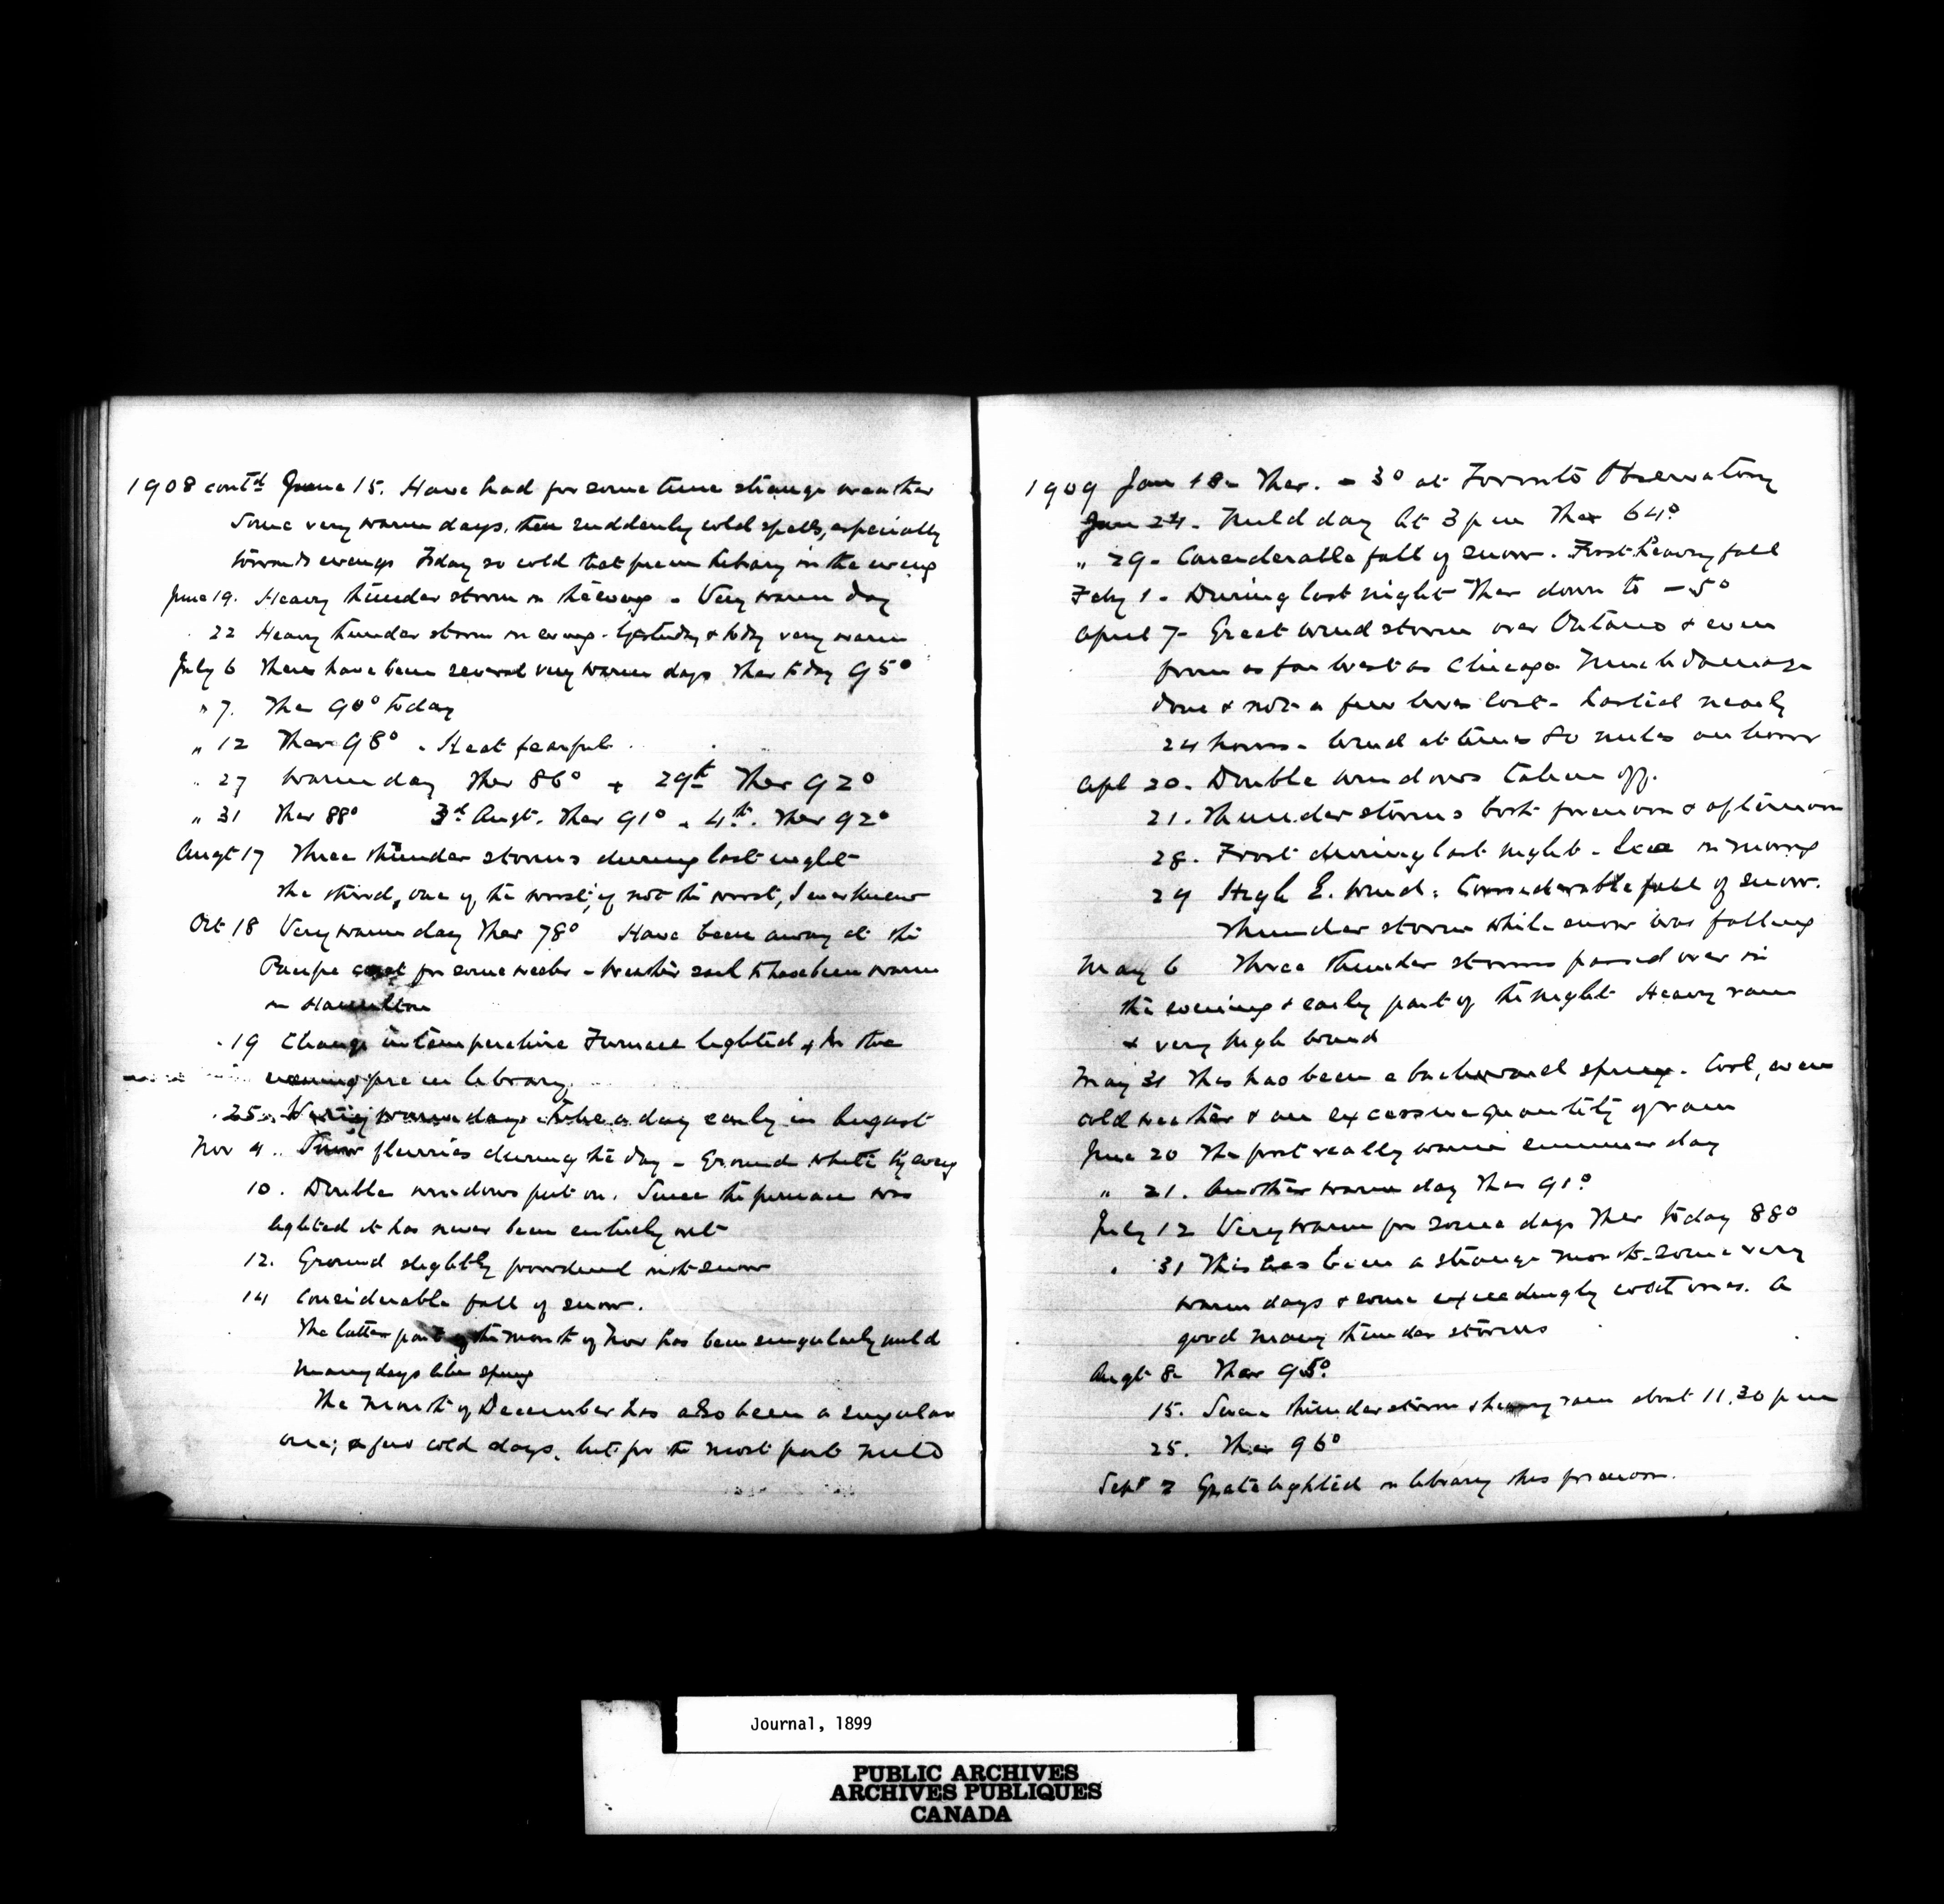 1908 contd June 15. Have had for some time strange weather
Some very warm days, then suddenly cold spells, especially
towards eveng. Today so cold that fire in library in the eveng
June 19. Heavy thunder storm in the eveng - Very warm day
22 Heavy thunder storm in eveng - Yesterday & today very warm
July 6 There have been several very warm days Ther today 95°
" 7. Ther 90° today
" 12 Ther 98° - Heat fearful
" 27 Warm day Ther 86° + 29th Ther 92°
" 31 Ther 88° 3d Augt. Ther 91° - 4th. Ther 92°
Augt 17 Three thunder storms during last night
the third, one of the worst, if not the worst, I ever knew
Oct 18 Very warm day Ther 78° Have been away at the
Pacific coast for some weeks - Weather said to have been warm
in Hamilton
19 Change in temperature Furnace lighted & in the
evening fire in library.
25. Very warm day - like a day early in August
Nov 4. Snow flurries during the day - Ground white by eveng
10. Double windows put on. Since the furnace was
lighted it has never been entirely out
12. Ground slightly powdered with snow
14 Considerable fall of snow.
The latter part of the month of Nov has been singularly mild
Many days like spring
The month of December has also been a singular
one; a few cold days, but for the most part mild
1909 Jan 18 - Ther. - 3° at Toronto Observatory
Jan 24. Mild day At 3 pm Ther 64°
" 29 - Considerable fall of snow. First heavy fall
Feby 1 - During last night Ther down to - 5°
April 7 - Great wind storm over Ontario & even
from as far west as Chicago Much damage
done & not a few lives lost - Lasted nearly
24 hours - Wind at times 80 miles an hour
Apl 20. Double windows taken off.
21. Thunder storms both forenoon & afternoon
28. Frost during last night - Ice in morng
29 High E. wind. Considerable fall of snow.
Thunder storm while snow was falling
May 6 Three thunder storms passed over in
the evening & early part of the night Heavy rain
& very high wind
May 31 This has been a backward spring. Cool, even
cold weather & an excessive quantity of rain
June 20 The first really warm summer day
" 21. Another warm day Ther 91°
July 12 Very warm for some days Ther today 88°
" 31 This has been a strange month - some very
warm days & some exceedingly cold ones. A
good many thunder storms
Augt 8 - Ther 95°
15. Severe thunder storm & heavy rain about 11.30 p m
25. Ther 96°
Sept 2 Grate lighted in library this forenoon.
Journal, 1899
PUBLIC ARCHIVES
ARCHIVES PUBLIQUES
CANADA